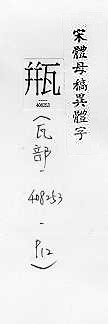 宋體母稿異體字
瓶
408253
(瓦部-408253-P12)